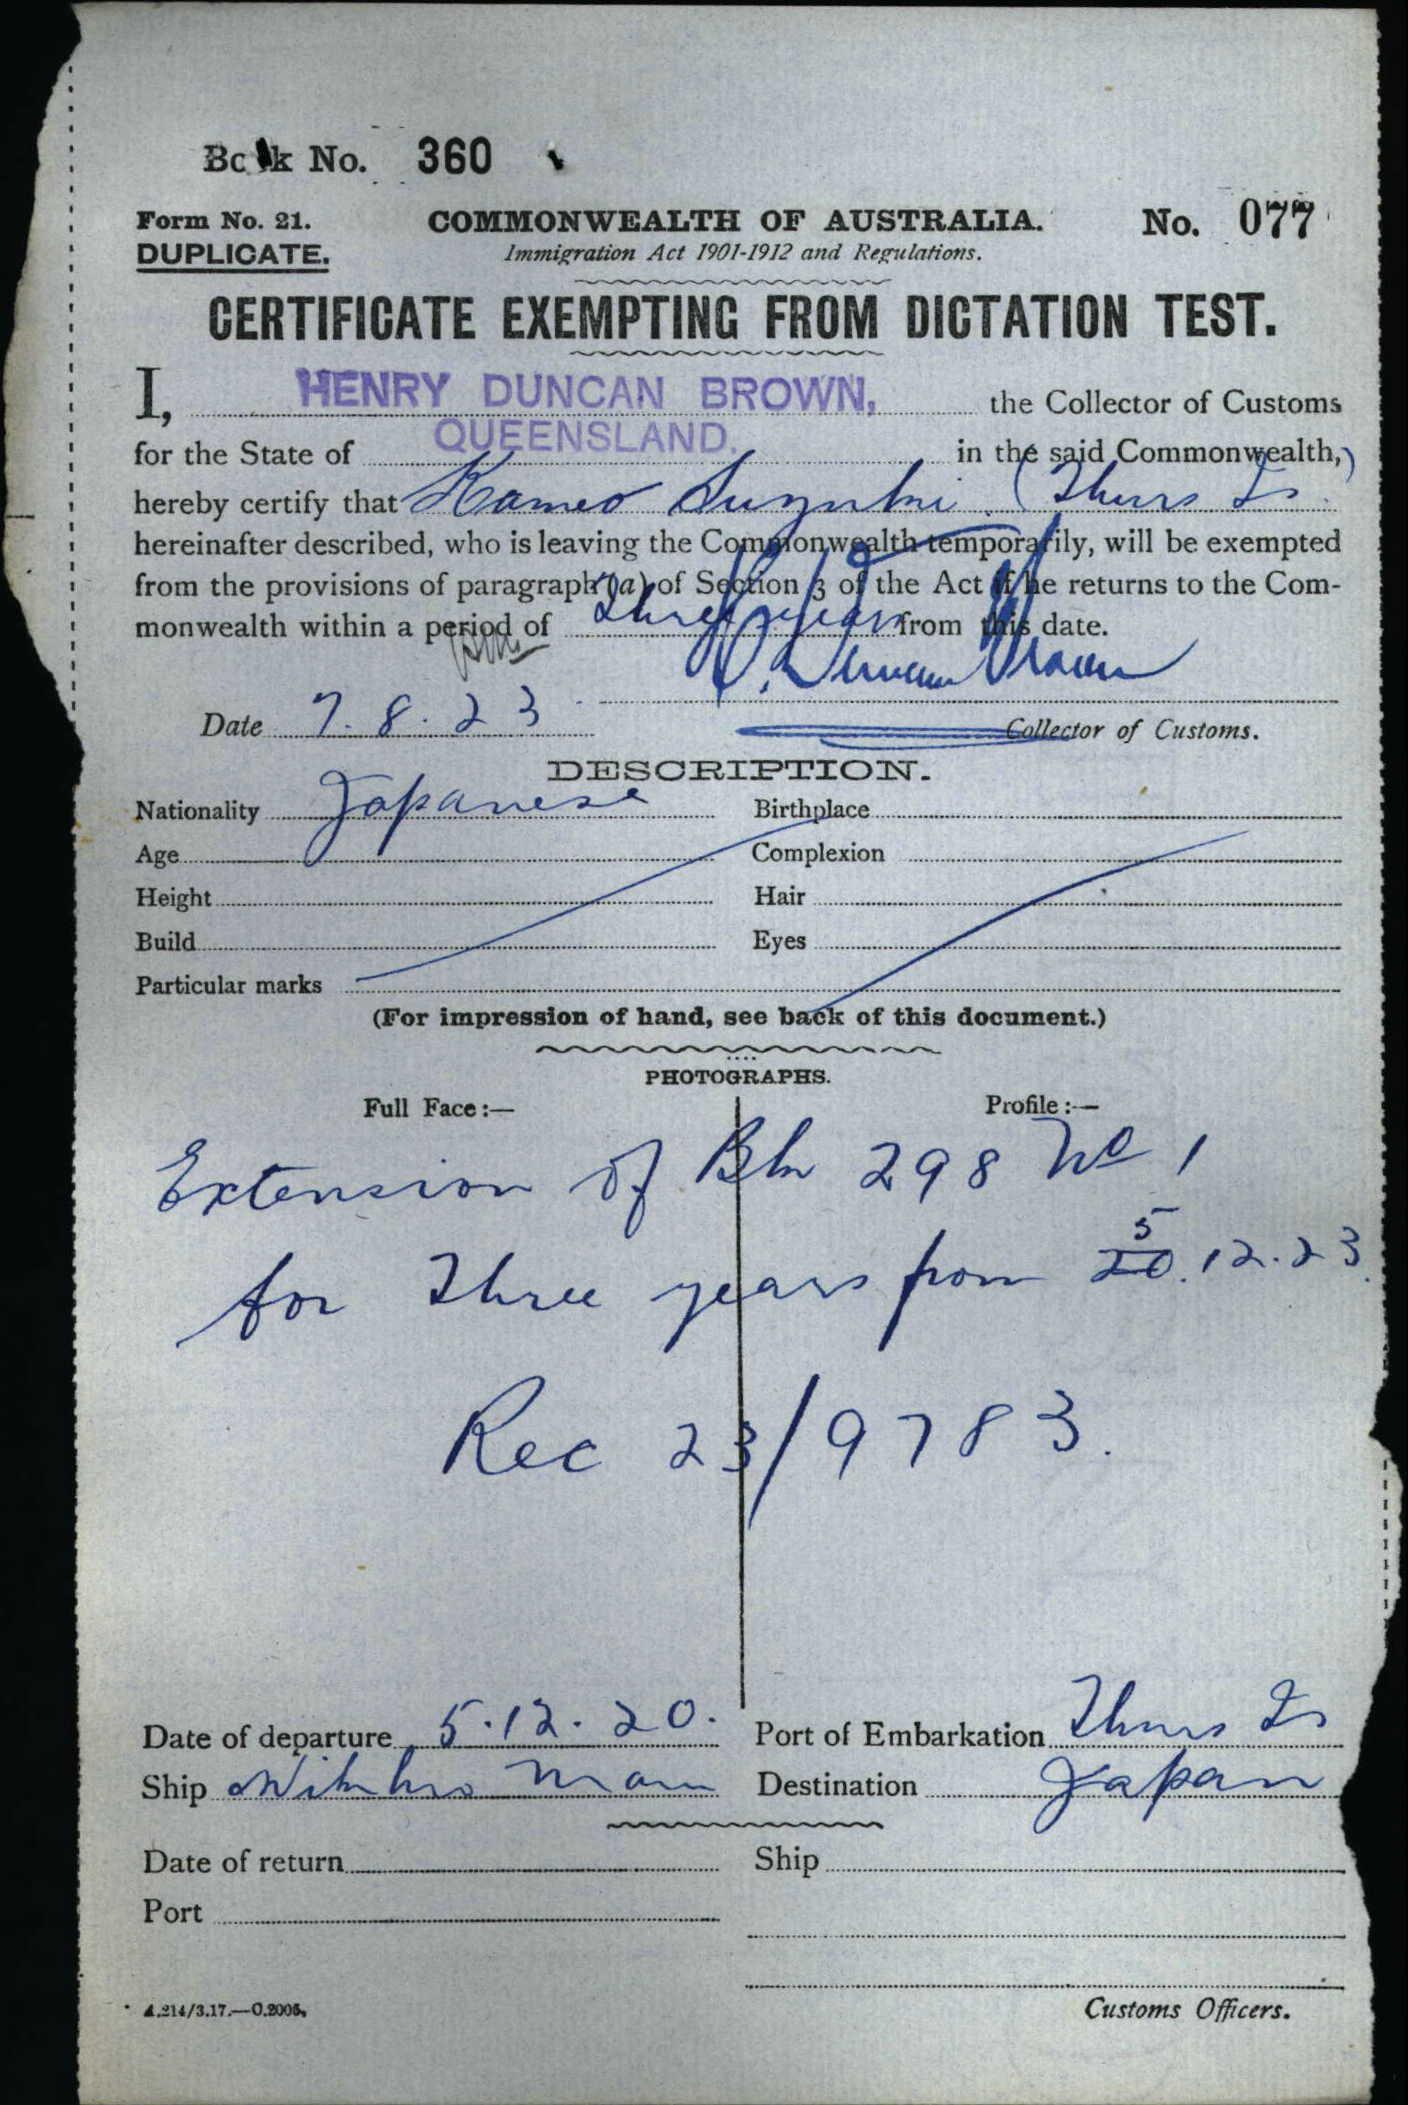 Book No. 360
Form No. 21.
COMMONWEALTH OF AUSTRALIA.
No. 077
DUPLICATE.
Immigration Act 1901-1912 and Regulations.
CERTIFICATE EXEMPTING FROM DICTATION TEST.
I, HENRY DUNCAN BROWN, the Collector of Customs
for the State of QUEENSLAND. in the said Commonwealth,
hereby certify that Kameo Suzuki. (Thurs Is.)
hereinafter described, who is leaving the Commonwealth temporarily, will be exempted
from the provisions of paragraph (a) of Section 3 of the Act if he returns to the Com-
monwealth within a period of Three years from this date.
H. Duncan Brown
Date 7.8.23
Collector of Customs.
DESCRIPTION.
Nationality Japanese
Birthplace
Age
Complexion
Height
Hair
Build
Eyes
Particular marks
(For impression of hand, see back of this document.)
PHOTOGRAPHS.
Full Face:—
Profile:—
Extension of Bk 298 No 1
for Three years from 20 5.12.23.
Rec 23/9783.
Date of departure 5.12.20.
Port of Embarkation Thurs Is
Ship Nikko Maru
Destination Japan
Date of return
Ship
Port
A.214/3.17.—C.2005.
Customs Officers.